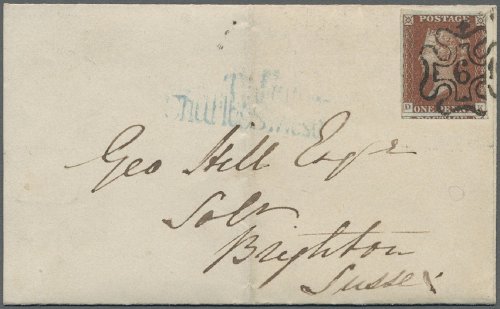 POSTAGE
6
ONE PENNY
Geo Hill Esqr
Solr
Brighton
Sussex